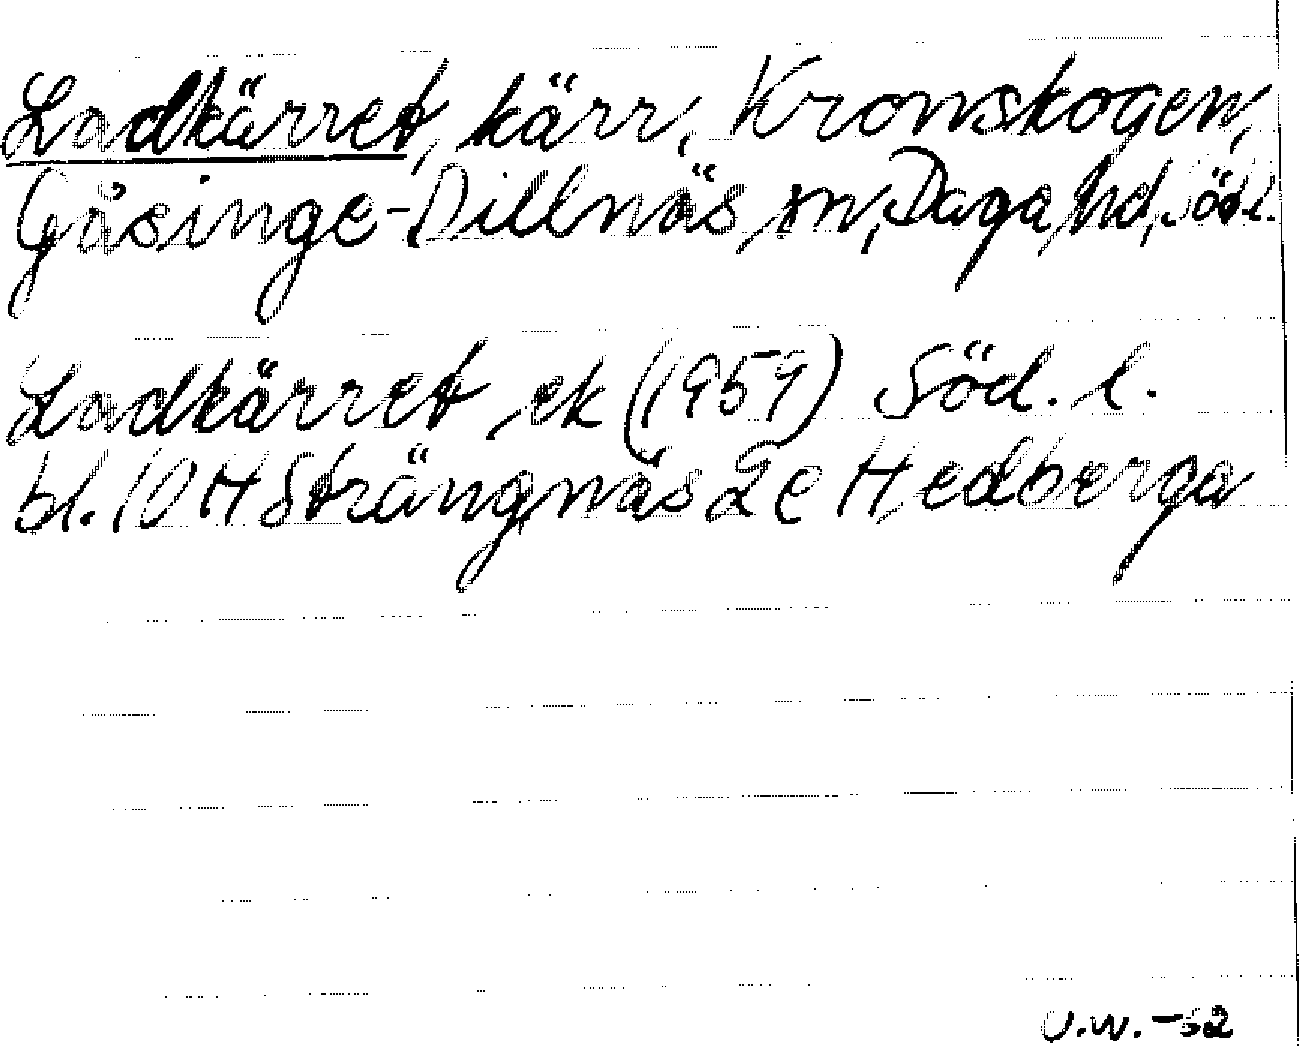 Ladkärret, kärr, Kronskogen,
Gåsinge-Dillnäs sn, Daga hd, Söd.
Ladkärret, ek (1959) Söd. l.
bl. 10 H Strängnäs 2 e Hedberga
U.W. -62